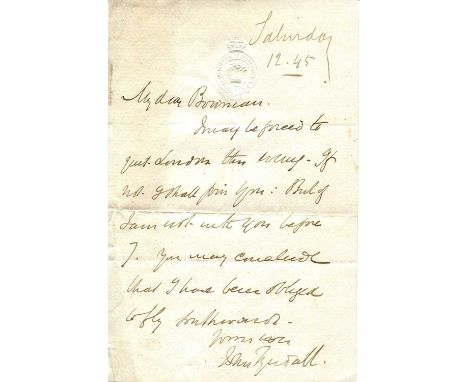 Saturday
12.45
My dear Bowman.
I may be forced to
quit London this evening. If
not I shall join you: But if
I am not with you before
7. You may conclude
that I have been obliged
to fly southwards.
Yours ever
John Tyndall.